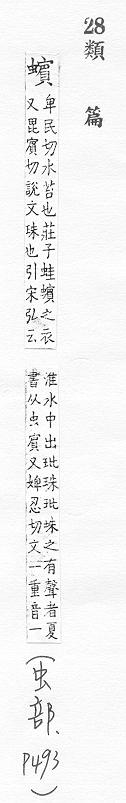 28類篇
蠙
卑民切水苔也莊子蛙蠙之衣
又毘賓切說文珠也引宋弘云
淮水中出玭珠玭珠之有聲者夏
書从虫賓又婢忍切文一重音一
(虫部、P493)